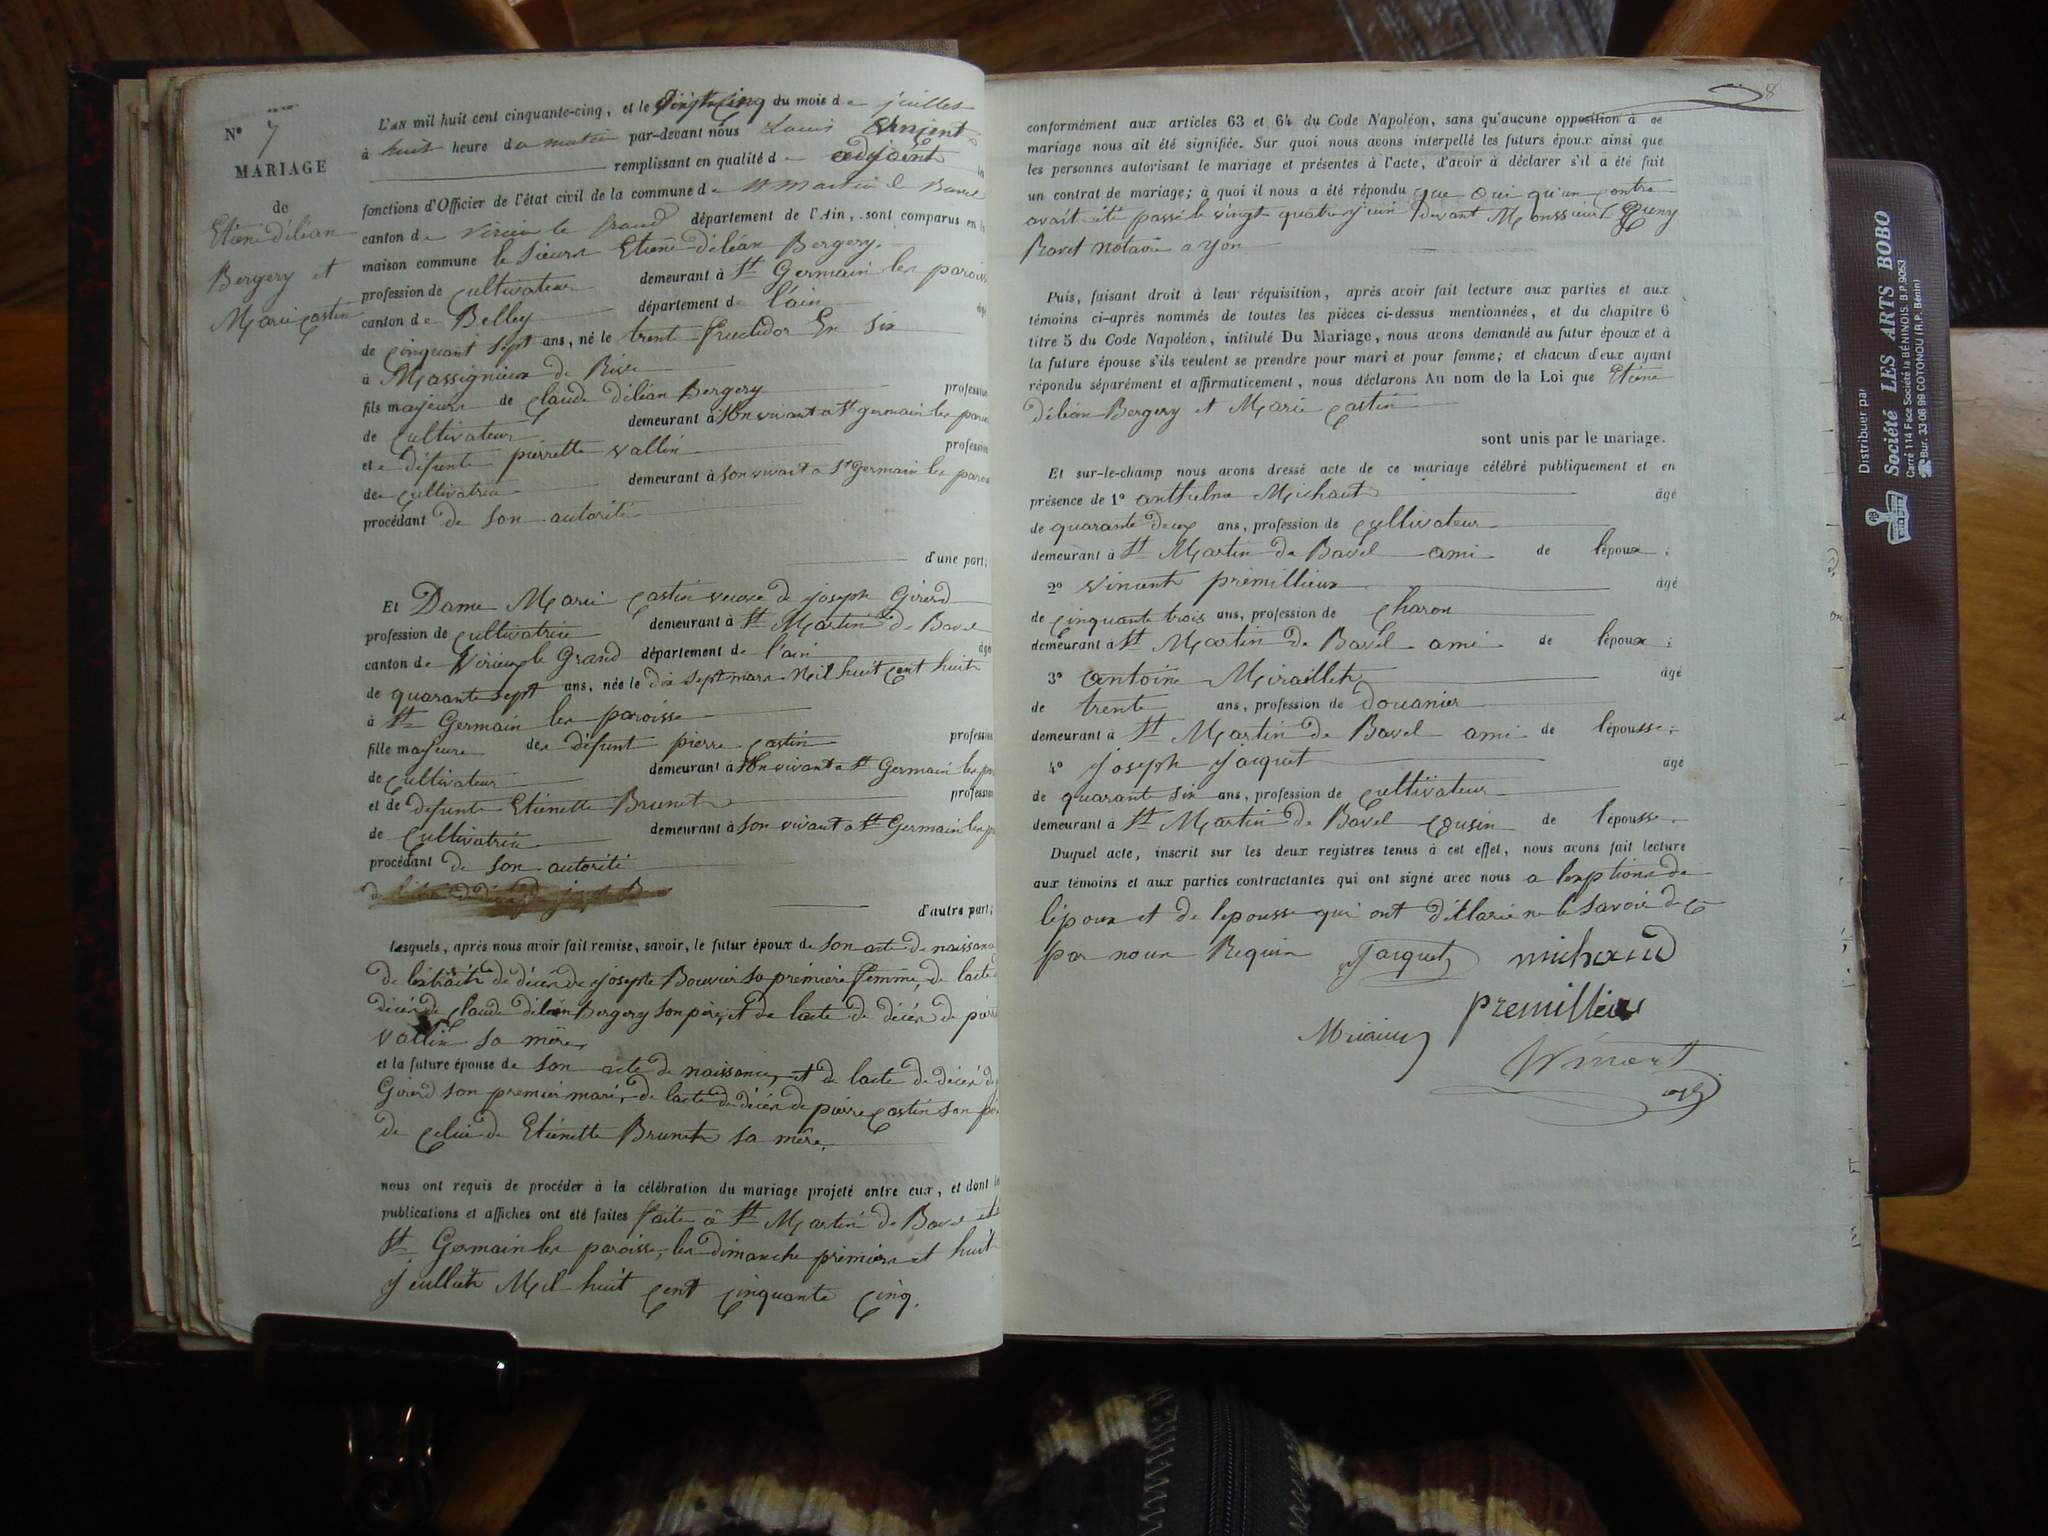 N° 7
MARIAGE
de
Etiene délian
Bergery et
Marie Castin
L'AN mil huit cent cinquante-cinq, et le Vingt cinq du mois de juillet
à huit heure du matin par-devant nous Louis
remplissant en qualité d adjoint
fonctions d'Officier de l'état civil de la commune de St Martin de Bavel
canton de Virieu le Grand département de l'Ain, sont comparus en la
maison commune le sieur Etiene délian Bergery
profession de cultivateur demeurant à St Germain les paroisse
canton de Belley département de l'ain âgé
de cinquant sept ans, né le trente fructidor En six
à Massignieux de Rive
fils majeur de Claude délian Bergery profession
de cultivateur demeurant à Son vivant a St germain les paroi
et de défunte pierrette vallin profession
de cultivatrice demeurant à son vivant a St Germain les paroi
procédant de son autorité
d'une part;
Et Dame Marie Castin veuve de joseph Girerd
profession de cultivatrice demeurant à St Martin de Bavel
canton de Virieu le Grand département de l'ain âgé
de quarante sept ans, née le dix sept mars Mil huit cent huit
à St Germain les paroisse
fille majeure de défunt pierre Castin profession
de cultivateur demeurant à Son vivant a St Germain les pa
et de defunte Etiénette Brunet profession
de Cultivatrice demeurant à son vivant a St Germain les pa
procédant de son autorité
d'autre part;
Lesquels, après nous avoir fait remise, savoir, le futur époux de son acte de naissance
de lextrait de décès de josephe Bouvier sa première femme, de lacte
décès de Claude délian Bergery son père, et de lacte de décès de pier
vallin sa mère,
et la future épouse de son acte de naissance, et de lacte de décès de
Girerd son premier mari, de lacte de décès de pierre Castin son pè
de celui de Etiénette Brunet sa mère.
nous ont requis de procéder à la célébration du mariage projeté entre eux, et dont les
publications et affiches ont été faites faite à St Martin de Bavel et
St Germain les paroisse, les dimanche premier et huit
juillet Mil huit cent cinquante cinq.
8
conformément aux articles 63 et 64 du Code Napoléon, sans qu'aucune opposition à ce
mariage nous ait été signifiée. Sur quoi nous avons interpellé les futurs époux ainsi que
les personnes autorisant le mariage et présentes à l'acte, d'avoir à déclarer s'il a été fait
un contrat de mariage; à quoi il nous a été répondu que oui qu'un contra
avait été passé le vingt quatre juin devant Monssieur
notaire a yon
Puis, faisant droit à leur réquisition, après avoir fait lecture aux parties et aux
témoins ci-après nommés de toutes les pièces ci-dessus mentionnées, et du chapitre 6
titre 5 du Code Napoléon, intitulé Du Mariage, nous avons demandé au futur époux et à
la future épouse s'ils veulent se prendre pour mari et pour femme; et chacun d'eux ayant
répondu séparément et affirmaticement, nous déclarons Au nom de la Loi que Etiene
délian Bergery et Marie Castin
sont unis par le mariage.
Et sur-le-champ nous avons dressé acte de ce mariage célébré publiquement et en
présence de 1° anthelme Michaut âgé
de quarante deux ans, profession de cultivateur
demeurant à St Martin de Bavel ami de l'époux;
2° vincent prémillieux âgé
de Cinquante trois ans, profession de Charon
demeurant à St Martin de Bavel ami de l'époux;
3° antoine Miraillet âgé
de trente ans, profession de douanier
demeurant à St Martin de Bavel ami de l'épousse;
4° joseph jacquet âgé
de quarant six ans, profession de cultivateur
demeurant à St Martin de Bavel cousin de l'épousse.
Duquel acte, inscrit sur les deux registres tenus à cet effet, nous avons fait lecture
aux témoins et aux parties contractantes qui ont signé avec nous a lexption de
lépoux et de lepousse qui ont déclaré ne le savoir de ce
par nous Requis Jacquet michaud
premillieu
Distribuer par
Société LES ARTS BOBO
Carré 114 Face Société la BÉNINOIS. B.P. 9053
Bur. 33-08 99 COTONOU (R.P. Bénin)